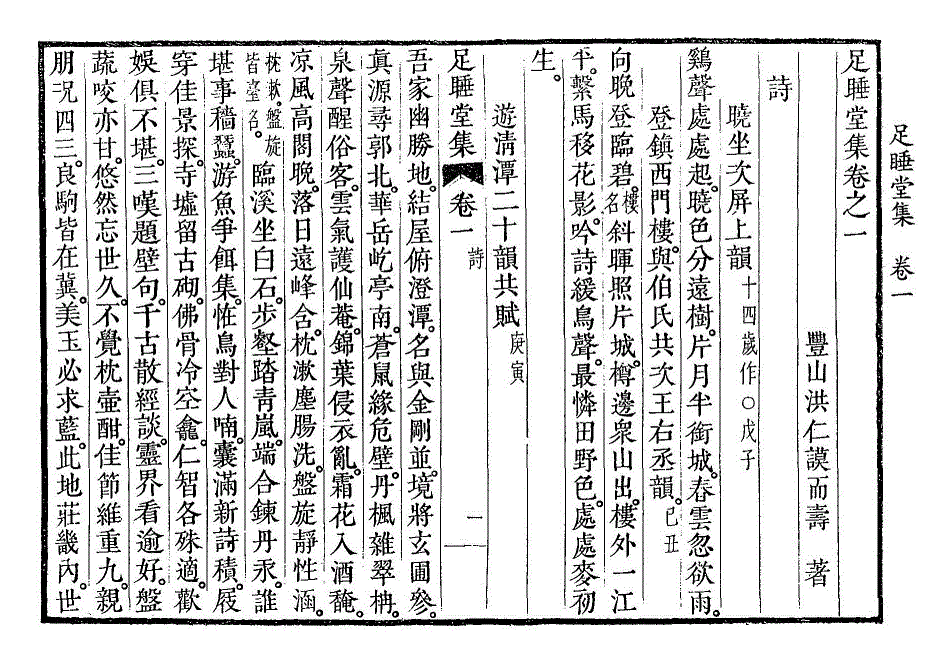 足睡堂集　卷一
足睡堂集卷之一
豐山洪仁謨而壽　著
詩
曉坐次屏上韻十四歲作○戊子
鷄聲處處起。曉色分遠樹。片月半銜城。春雲忽欲雨。
登鎭西門樓。與伯氏共次王右丞韻。己丑
向晚登臨碧。樓名斜暉照片城。樽邊衆山出。樓外一江
平。繫馬移花影。吟詩緩鳥聲。最憐田野色。處處麥初
生。
遊淸潭二十韻共賦庚寅
足睡堂集　卷一　詩　一
吾家幽勝地。結屋俯澄潭。名與金剛並。境將玄圃參。
眞源尋郭北。華岳屹亭南。蒼鼠緣危壁。丹楓雜翠枏。
泉聲醒俗客。雲氣護仙菴。錦葉侵衣亂。霜花入酒馣。
凉風高閣晩。落日遠峰含。枕漱塵腸洗。盤旋靜性涵。
枕漱。盤旋皆臺名。臨溪坐白石。步壑踏青嵐。端合鍊丹汞。誰
堪事穡蠶。游魚爭餌集。恠鳥對人喃。囊滿新詩積。屐
穿佳景探。寺墟留古砌。佛骨冷空龕。仁智各殊適。歡
娛俱不堪。三嘆題壁句。千古散經談。靈界看逾好。盤
蔬咬亦甘。悠然忘世久。不覺枕壺酣。佳節維重九。親
朋况四三。良駒皆在冀。美玉必求藍。此地莊畿內。世